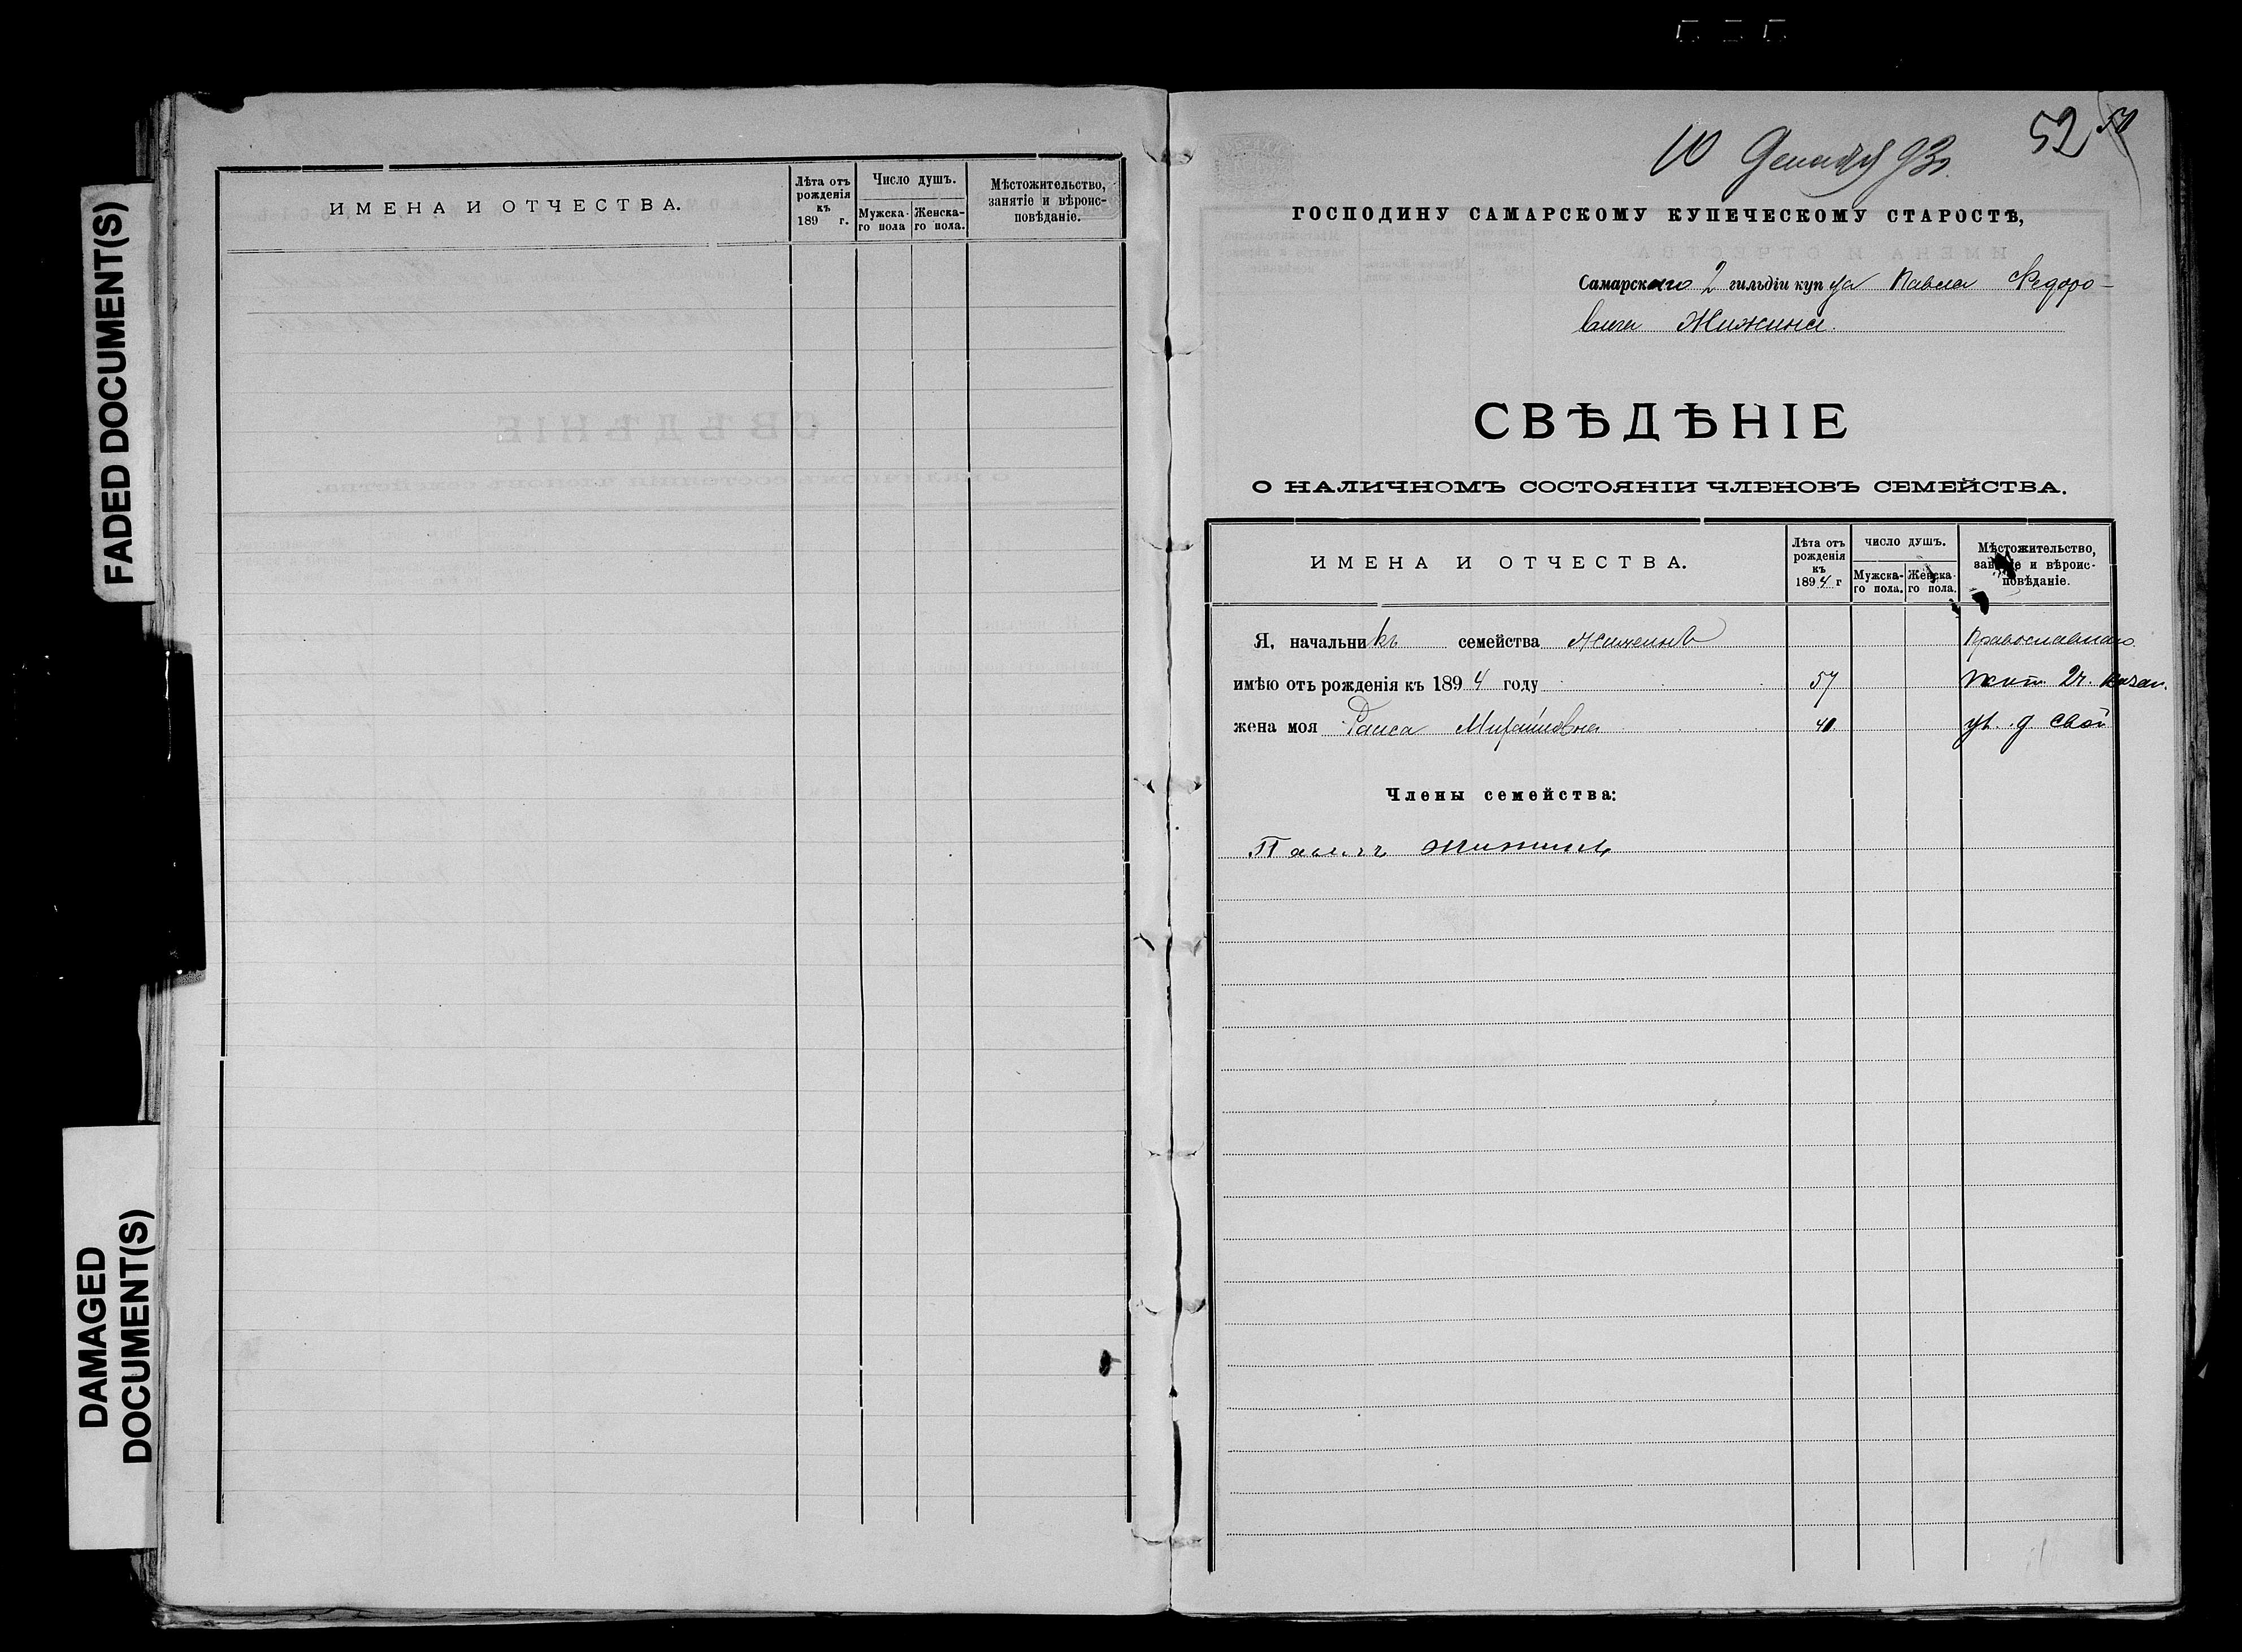 FADED DOCUMENT(S)
DAMAGED
DOCUMENT(S)
ИМЕНА И ОТЧЕСТВА.
Лѣта отъ
рожденія
къ
189 г.
Число душъ.
Мужска-
го пола
Женска-
го пола.
Мѣстожительство,
занятіе и вѣроис-
повѣданіе.
52
10 Декабря 93 г.
ГОСПОДИНУ САМАРСКОМУ КУПЕЧЕСКОМУ СТАРОСТѢ,
Самарскаго 2 гильдіи купца Павла Федоро-
вича Жижина.
СВѢДѢНІЕ
О НАЛИЧНОМЪ СОСТОЯНІИ ЧЛЕНОВЪ СЕМЕЙСТВА.
ИМЕНА И ОТЧЕСТВА.
Лѣта отъ
рожденія
къ
1894 г
ЧИСЛО ДУШЪ.
Мужска-
го пола.
Женска-
го пола.
Мѣстожительство,
занятіе и вѣроис-
повѣданіе.
Я, начальникъ семейства Жижинъ Православнаго
имѣю отъ рожденія къ 1894 году 57 жит. 2 ч. Казан.
жена моя Раиса Михайловна 40. ул. д свой
Члены семейства:
Павилъ Жижинъ